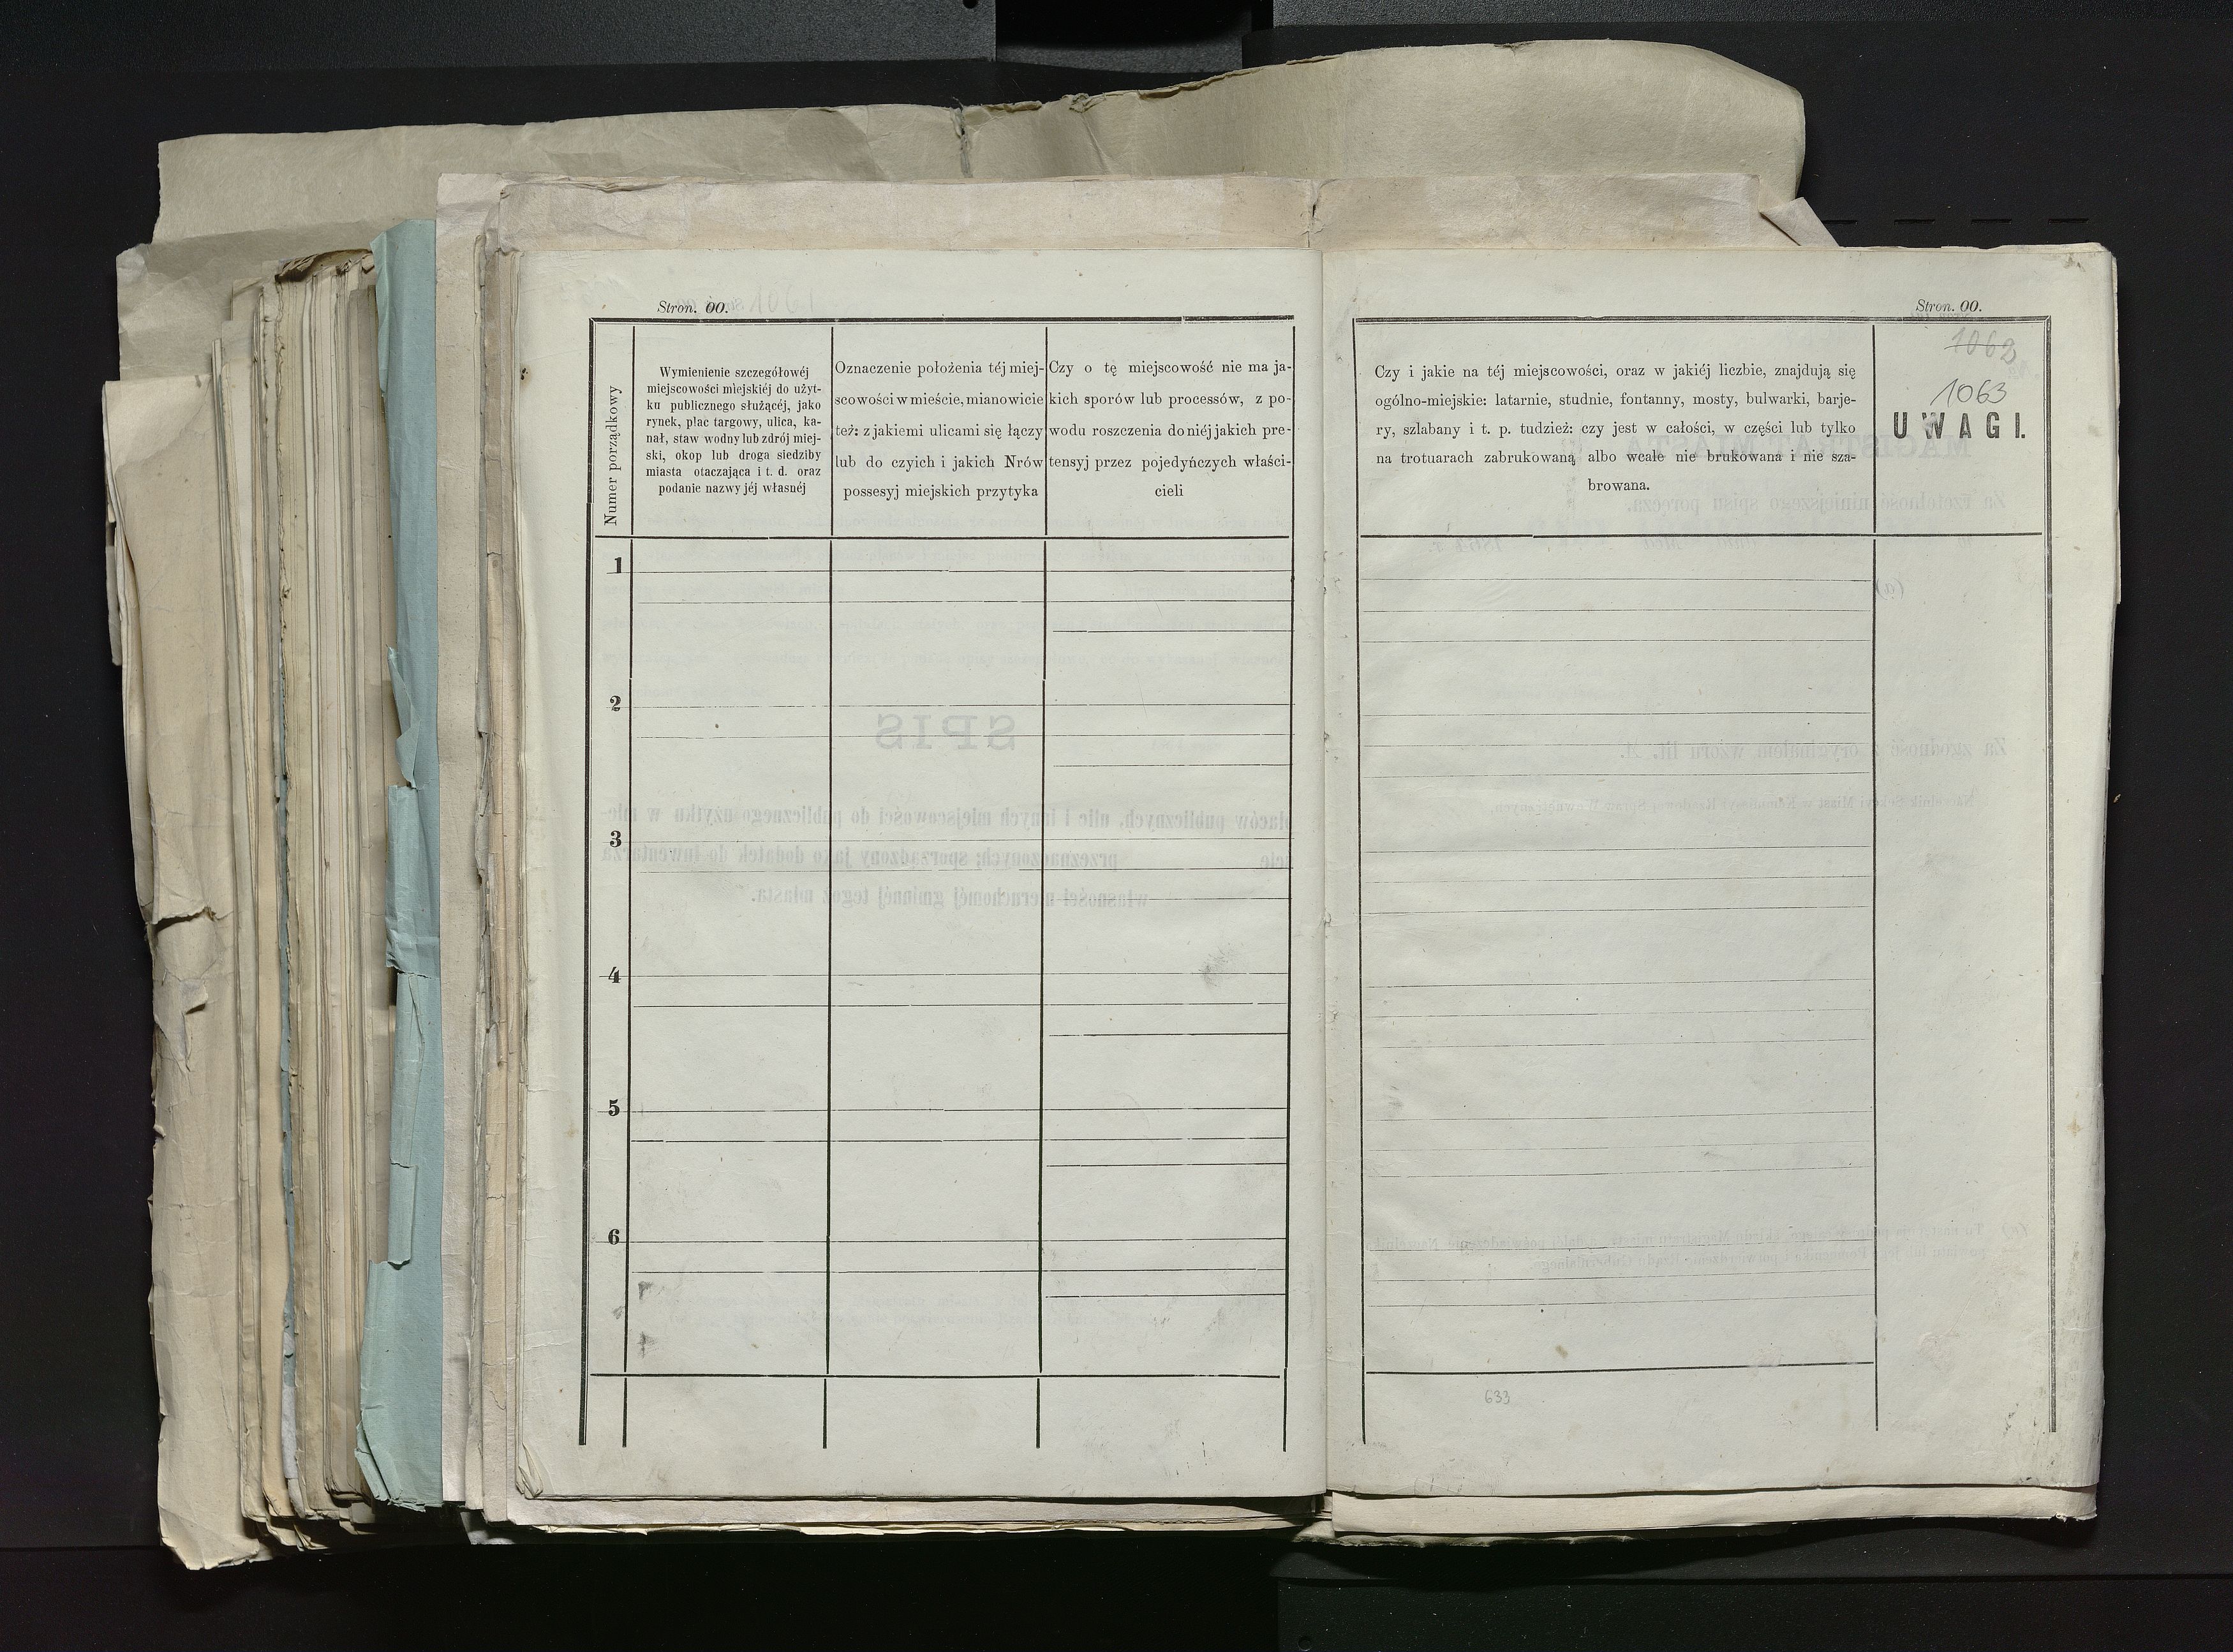 Stron. 00.
Numer porządkowy
Wymienienie szczegółowéj
miejscowości miejskiéj do użyt-
ku publicznego służącéj, jako
rynek, plac targowy, ulica, ka-
nał, staw wodny lub zdrój miej-
ski, okop lub droga siedziby
miasta otaczająca i t. d. oraz
podanie nazwy jéj własnéj
Oznaczenie położenia téj miej-
scowości w mieście, mianowicie
też: z jakiemi ulicami się łączy
lub do czyich i jakich Nrów
possesyj miejskich przytyka
Czy o tę miejscowość nie ma ja-
kich sporów lub processów, z po-
wodu roszczenia do niéj jakich pre-
tensyj przez pojedyńczych właści-
cieli
1
2
3
4
5
6
Stron. 00.
1062
1063
Czy i jakie na téj miejscowości, oraz w jakiéj liczbie, znajdują się
ogólno-miejskie: latarnie, studnie, fontanny, mosty, bulwarki, barje-
ry, szlabany i t. p. tudzież: czy jest w całości, w części lub tylko
na trotuarach zabrukowaną albo wcale nie brukowana i nie sza-
browana.
UWAGI.
633